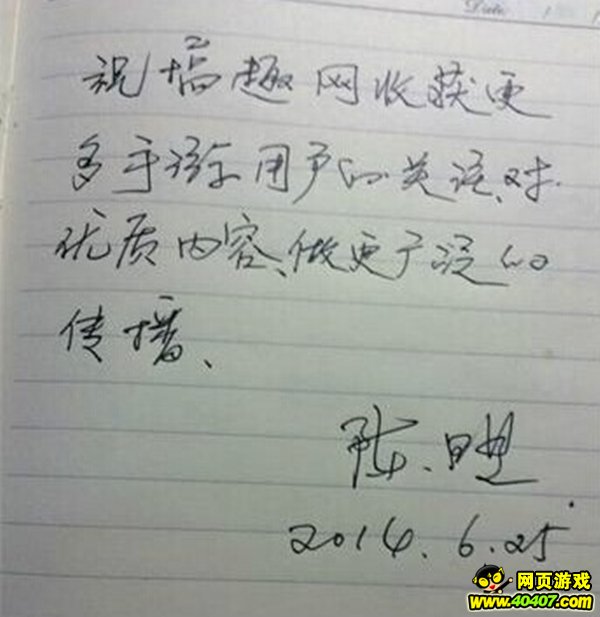 Date
祝搞趣网收获更
多手游用户的关注、对
优质内容、做更广泛的
传播、
陈
2014.6.25
网页游戏
www.40407.com